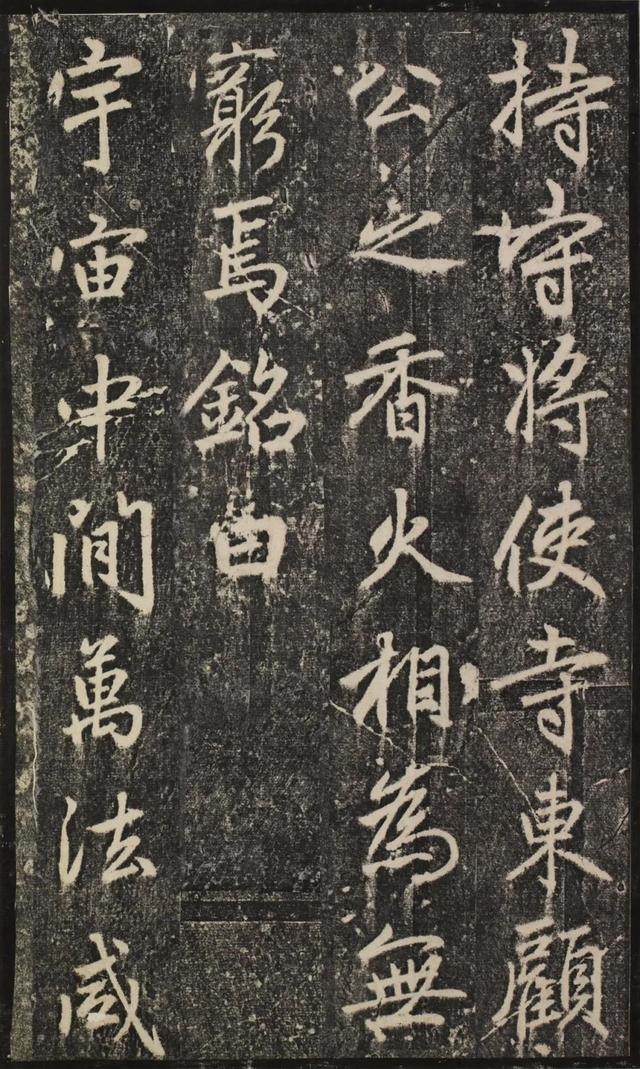 持垨將使寺東顧
公之香火相為無
窮焉銘曰
宇宙中間萬法咸